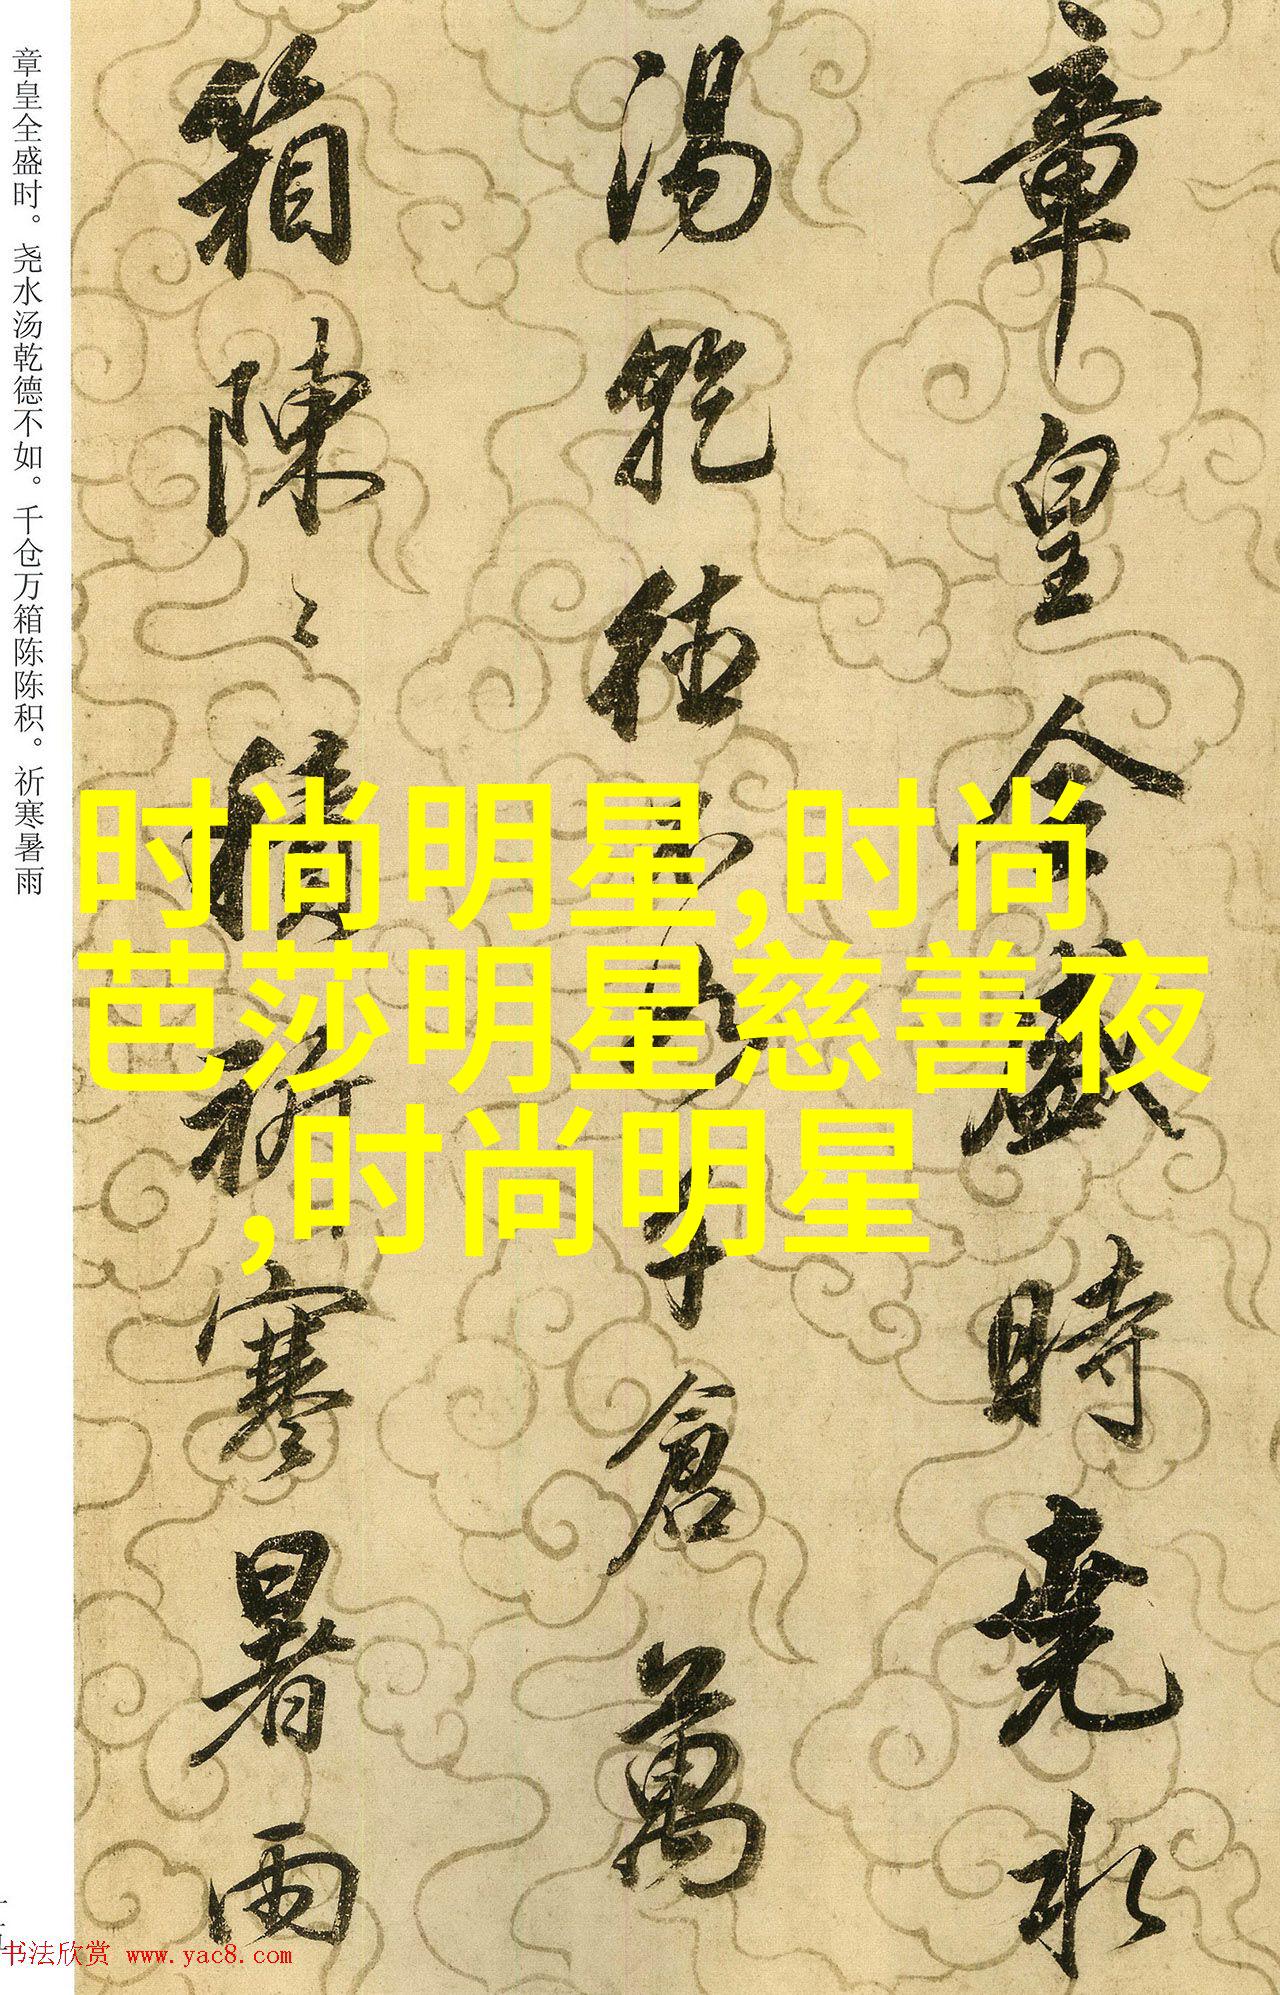 章皇全盛時堯水
湯乾德不如千倉萬
箱陳々積祈寒暑雨
章皇全盛时。尧水汤乾德不如。千仓万箱陈陈积。祈寒暑雨
时尚明星,时尚
芭莎明星慈善夜
,时尚明星
书法欣赏 www.yac8.com